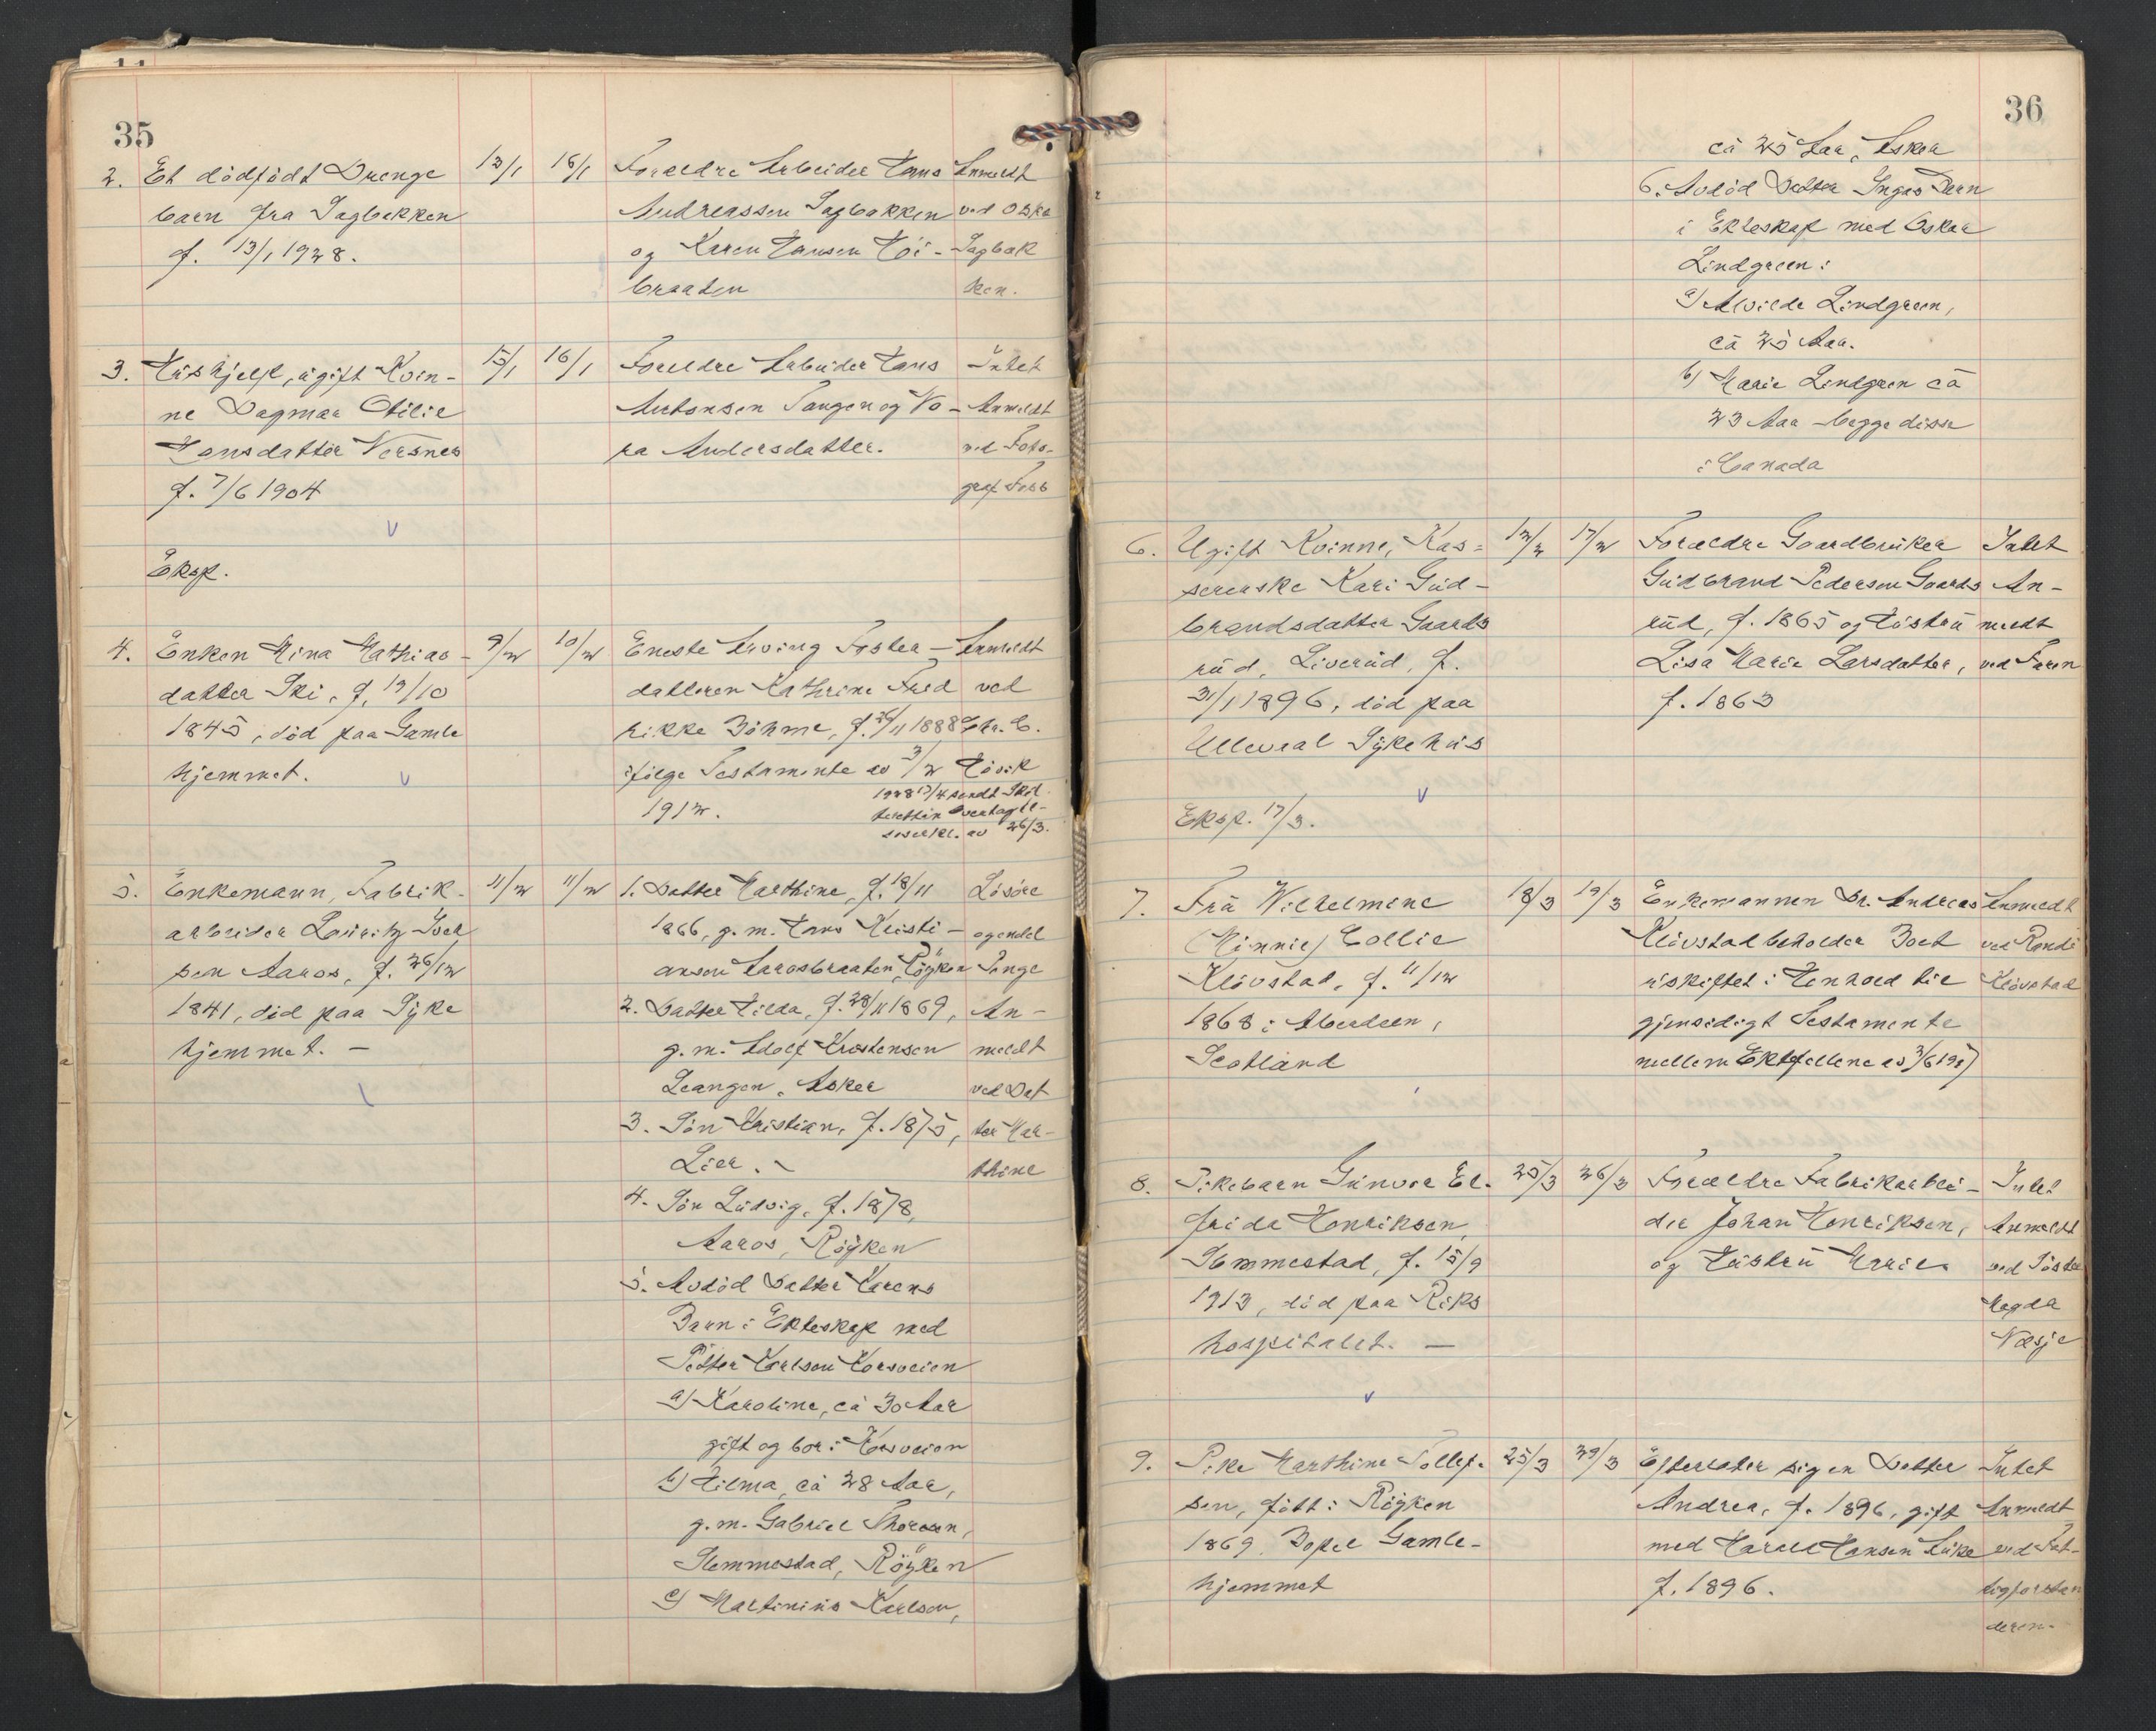 35
2. Et dödfödt Drenge
barn fra Sagbakken
f. 13/1 1928.
13/1 16/1
Forældre Arbeider Hans
Andreassen Sagbakken
og Karen Hansen Höi-
braaten
Anmeldt
ved Oska
Sagbak
ken.
3. Hushjelp, ugift Kvin-
ne Dagmar Otilie
Hansdatter Versnes
f. 7/6 1904
Eksp.
15/1 16/1
Foreldre Arbeider Hans
Antonsen Tangen og No-
ra Andersdatter.
Intet
Anmeldt
ved Foto-
graf Foss
4. Enken Mina Mathias-
datter Ski, f. 13/10
1845, död paa Gamle
hjemmet.
9/2 10/2
Eneste Arving Foster-
datteren Kathrine Fred
rikke Böhme, f. 26/11 1888
ifölge Testamente av 3/2
1912.
Anmeldt
ved
Chr. C.
Hövik
1928 17/4 sendt Skif
teretten Overtagel-
seserkl. av 26/3.
5. Enkemann, Fabrik-
arbeider Lauritz Iver
sen Aaros, f. 26/12
1841, död paa Syke
hjemmet. —
11/2 11/2
1. Datter Marthine, f. 18/11
1866, g. m. Hans Kristi-
ansen Aarosbraaten, Röyken
2. Datter Hilda, f. 28/11 1869,
g. m. Adolf Kristensen
Leangen, Asker
3. Sön Kristian, f. 1875,
Lier. -
4. Sön Ludvig, f. 1878,
Aaros, Röyken
5. Avdöd Datter Karens
Barn i Ekteskap med
Petter Karlsen Korsveien
a) Karoline, ca 30 Aar
gift og bor i Korsveien
b) Hilma, ca 28 Aar,
g. m. Gabriel Thoresen,
Slemmestad, Röyken
c) Martinius Karlsen,
Lösöre
og endel
Penge
An-
meldt
ved Dat
ter Mar-
thine
36
ca 25 Aar, Asker
6. Avdöd Datter Ingas Barn
i Ekteskap med Oskar
Lindgreen:
a) Alvilde Lindgreen,
ca 25 Aar.
b) Marie Lindgren ca
23 Aar - begge disse
i Canada
6. Ugift Kvinne, Kas-
sererske Kari Gud-
brandsdatter Gaards
rud, Liverud, f.
31/1 1896, död paa
Ulleval Sykehus
Eksp. 17/3.
12/2 17/2
Forældre Gaardbruker
Gudbrand Pedersen Gaards
rud, f. 1865 og Hustru
Lisa Marie Larsdatter,
f. 1863
Intet
An-
meldt
ved Faren
7. Fru Wilhelmine
(Minnie) Collie
Klövstad, f. 11/12
1868 i Aberdeen,
Scotland
18/3 19/3
Enkemannen Dr. Andreas
Klövstad beholder Boet
uskiftet i Henhold til
gjensidigt Testamente
mellem Ektefellene av 3/6 1927
Anmeldt
ved Randi
Klövstad
8. Pikebarn Gunvor El-
frida Henriksen,
Slemmestad, f. 15/9
1913, död paa Riks
hospitalet. —
25/3 26/3
Forældre Fabrikarbei-
der Johan Henriksen,
og Hustru Marie.
Intet
Anmeldt
ved Söster
Magda
Næsje
9. Pike Marthine Tollef-
sen, födt i Röyken
1869. Bopel Gamle-
hjemmet
25/3 29/3
Efterlater sig en Datter
Andrea, f. 1896, gift
med Harald Hansen
f. 1896.
Intet
Anmeldt
ved Fat-
tigforstan
deren.